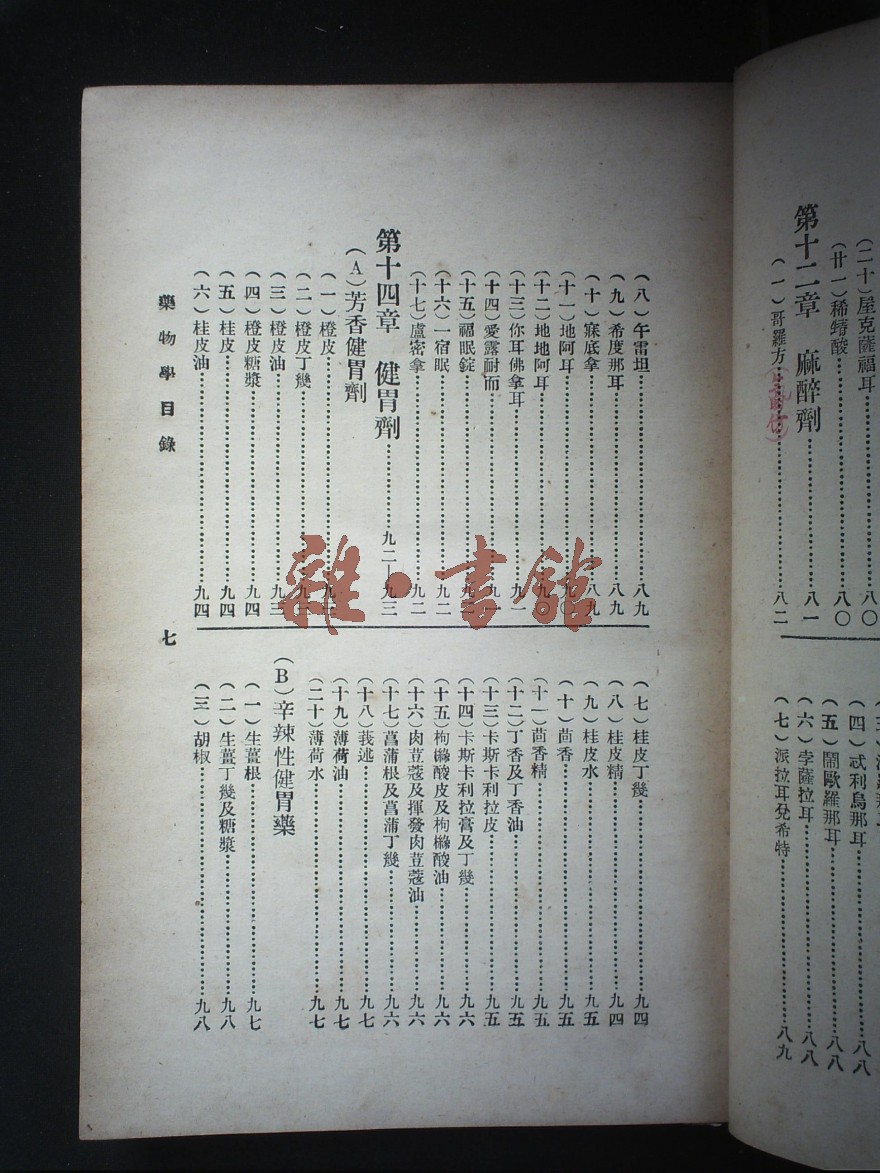 (二十)屋克薩福耳……八〇
(廿一)稀𨡓酸……八〇
第十二章　麻醉劑……八一
(一)哥羅方……八二
(四)忒利烏那耳……八八
(五)鬧歐羅那耳……八八
(六)孛薩拉耳……八八
(七)派拉耳兌希特……八九
(八)午雷坦……八九
(九)希度那耳……八九
(十)寐底拿……八九
(十一)地阿耳……九〇
(十二)地地阿耳
(十三)你耳佛拿耳……九一
(十四)愛露耐而……九一
(十五)福眠錠
(十六)一宿眠……九二
(十七)盧密拿……九二
第十四章　健胃劑……九二—九三
(A)芳香健胃劑
(一)橙皮
(二)橙皮丁幾
(三)橙皮油……九三
(四)橙皮糖漿……九四
(五)桂皮……九四
(六)桂皮油……九四
(七)桂皮丁幾……九四
(八)桂皮精……九四
(九)桂皮水……九五
(十)茴香……九五
(十一)茴香精……九五
(十二)丁香及丁香油……九五
(十三)卡斯卡利拉皮……九五
(十四)卡斯卡利拉膏及丁幾……九六
(十五)枸櫞酸皮及枸櫞酸油……九六
(十六)肉荳蔻及揮發肉荳蔻油……九六
(十七)菖蒲根及菖蒲丁幾……九六
(十八)莪朮……九七
(十九)薄荷油……九七
(二十)薄荷水……九七
(B)辛辣性健胃藥
(一)生薑根……九七
(二)生薑丁幾及糖漿……九八
(三)胡椒……九八
藥物學目錄　七
雜·書館